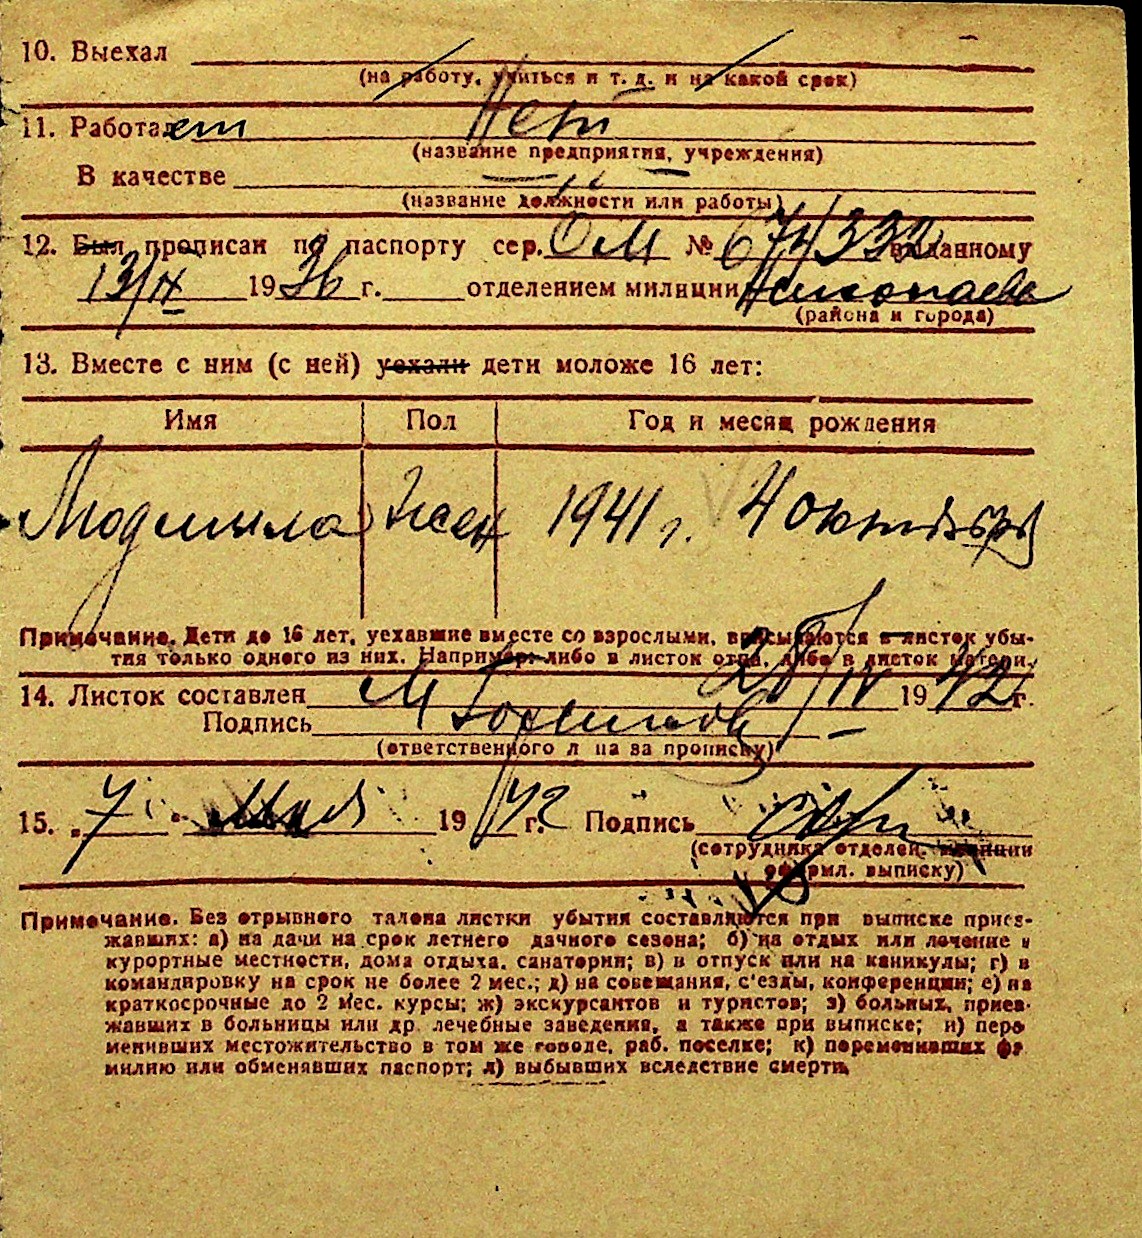 10. Выехал
(на работу, учиться и т. д. и на какой срок)
11. Работает Нет
(название предприятия, учреждения)
В качестве — „ —
(название должности или работы)
12. Был прописан по паспорту сер. ОМ № 674332 выданному
13/IX 1936 г. отделением милиции Николаева
(района и города)
13. Вместе с ним (с ней) уехали дети моложе 16 лет:
Имя Пол Год и месяц рождения
Людмила жен 1941 г. 4 октября
Примечание. Дети до 16 лет, уехавшие вместе со взрослыми, вписываются в листок убы-
тия только одного из них. Например: либо в листок отца, либо в листок матери.
14. Листок составлен 28/IV 1942 г.
Подпись
(ответственного лица за прописку)
15. „ 7 " мая 1942 г. Подпись
(сотрудника отделен. милиции
оформл. выписку)
Примечание. Без отрывного талона листки убытия составляются при выписке приез-
жавших: а) на дачи на срок летнего дачного сезона; б) на отдых или лечение в
курортные местности, дома отдыха, санатории; в) в отпуск или на каникулы; г) в
командировку на срок не более 2 мес.; д) на совещания, с'езды, конференции; е) на
краткосрочные до 2 мес. курсы; ж) экскурсантов и туристов; з) больных, приез-
жавших в больницы или др. лечебные заведения, а также при выписке; и) пере
менивших местожительство в том же городе, раб. поселке; к) переменивших фа
милию или обменявших паспорт; л) выбывших вследствие смерти.